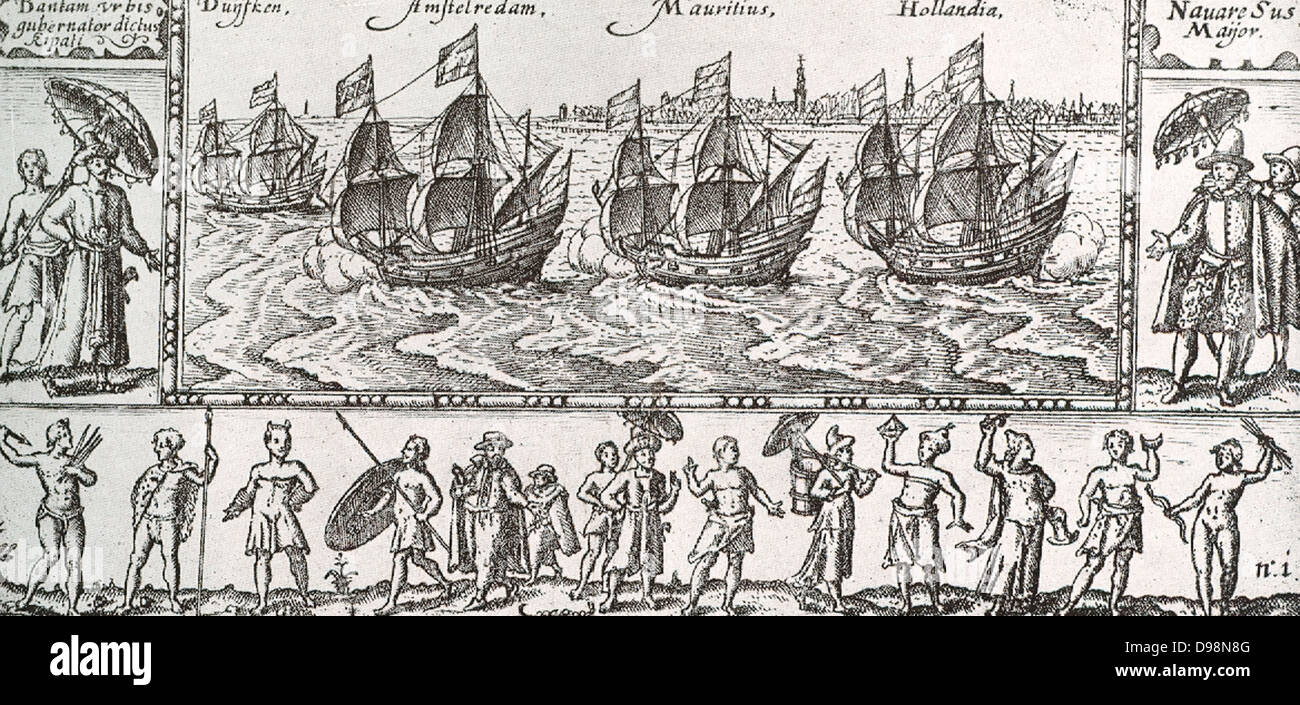 Bantam vrbis
gubernator dictus
Kipati
Duyfken,
Amstelredam,
Mauritius,
Hollandia,
Nauare Sus
Maijor.
n.1
a
alamy stock photo
D98N8G
www.alamy.com